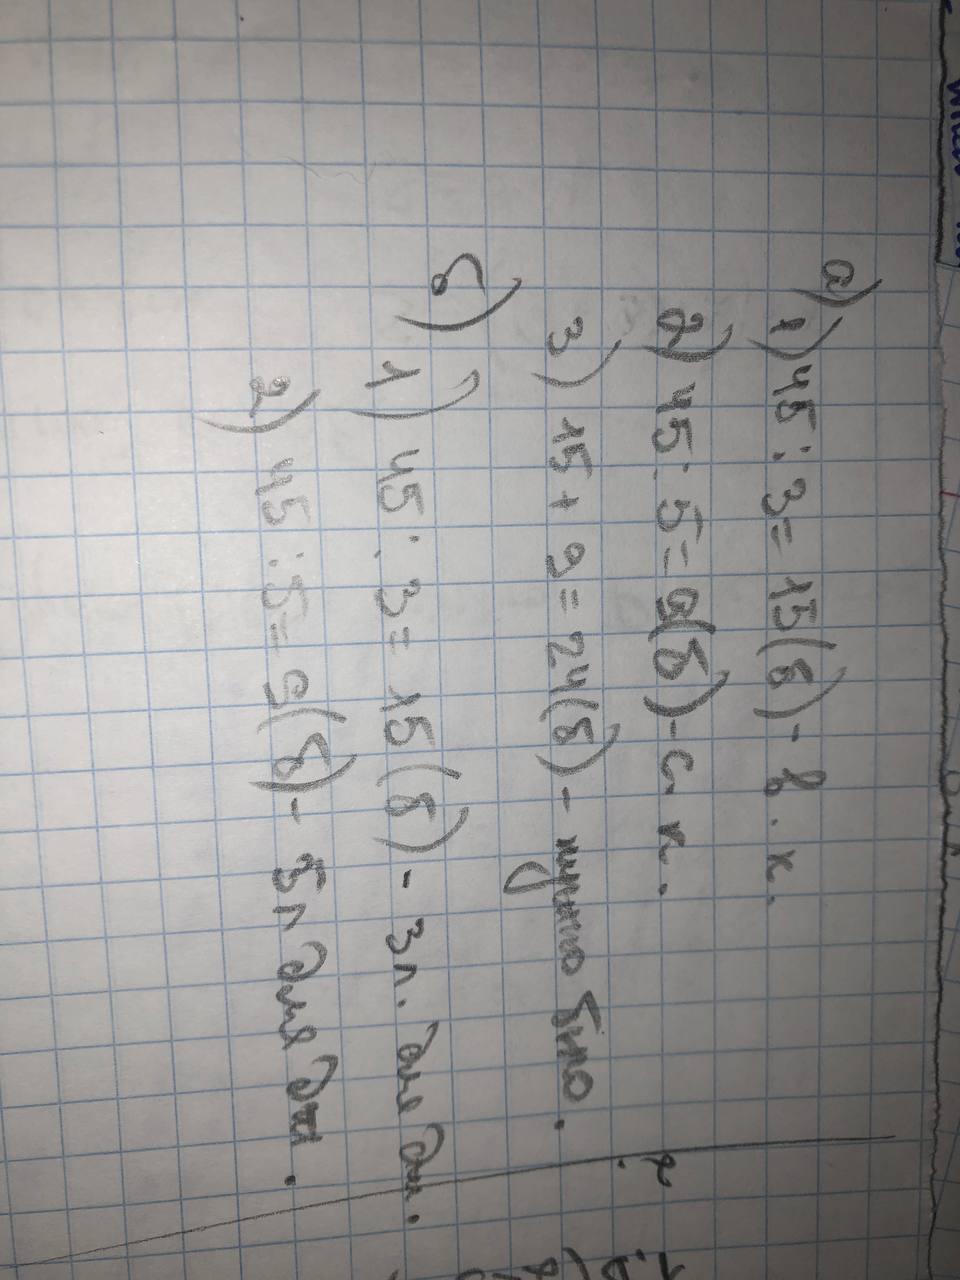 а)
1) 45 : 3 = 15 (б) - в. к.
2) 45 : 5 = 9 (б) - с. к.
3) 15 + 9 = 24 (б) - нужно было.
б)
1) 45 : 3 = 15 (б) - 3 л. для
2) 45 : 5 = 9 (б) - 5 л для